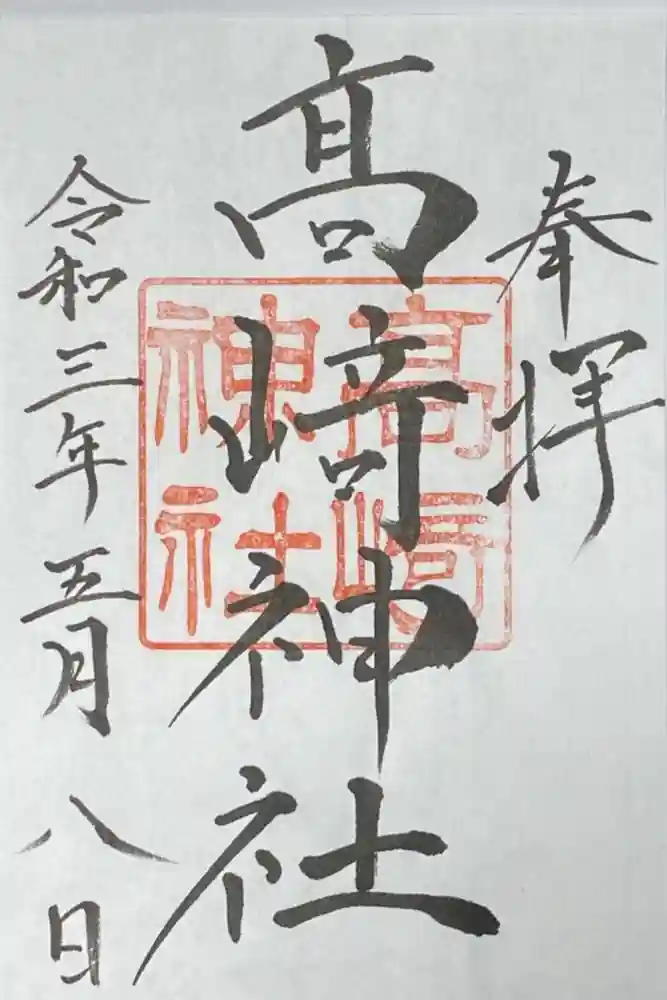 奉拝
高﨑神社
高崎神社
令和三年五月八日